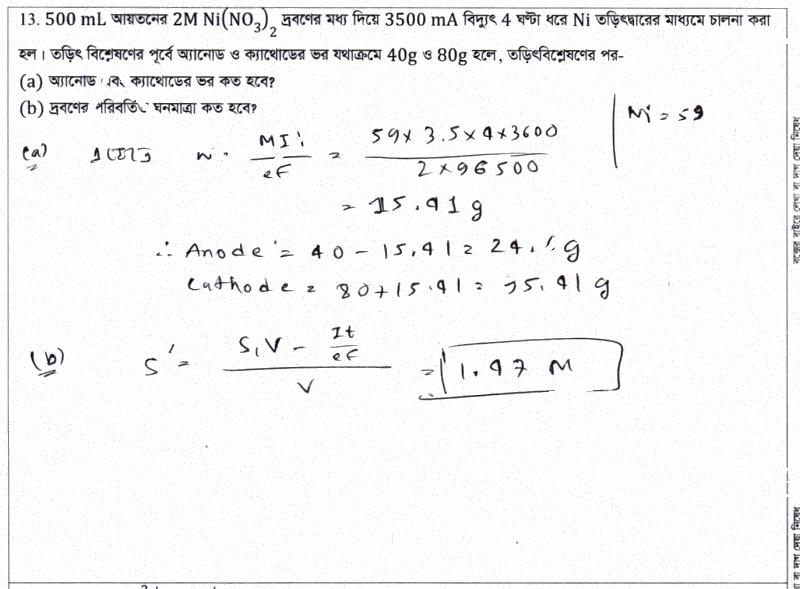 13. 500 mL আয়তনের 2M Ni(NO₃)₂ দ্রবণের মধ্য দিয়ে 3500 mA বিদ্যুৎ 4 ঘণ্টা ধরে Ni তড়িৎদ্বারের মাধ্যমে চালনা করা
হল। তড়িৎ বিশ্লেষণের পূর্বে অ্যানোড ও ক্যাথোডের ভর যথাক্রমে 40g ও 80g হলে, তড়িৎবিশ্লেষণের পর-
(a) অ্যানোড এবং ক্যাথোডের ভর কত হবে?
(b) দ্রবণের পরিবর্তিত ঘনমাত্রা কত হবে?
Ni = 59
(a) W = MIt / eF = 59 x 3.5 x 4 x 3600 / 2 x 96500
= 15.41 g
∴ Anode = 40 - 15.41 = 24. g
Cathode = 80 + 15.41 = 95.41 g
(b) S' = S₁V - It/eF / V = 1.47 M